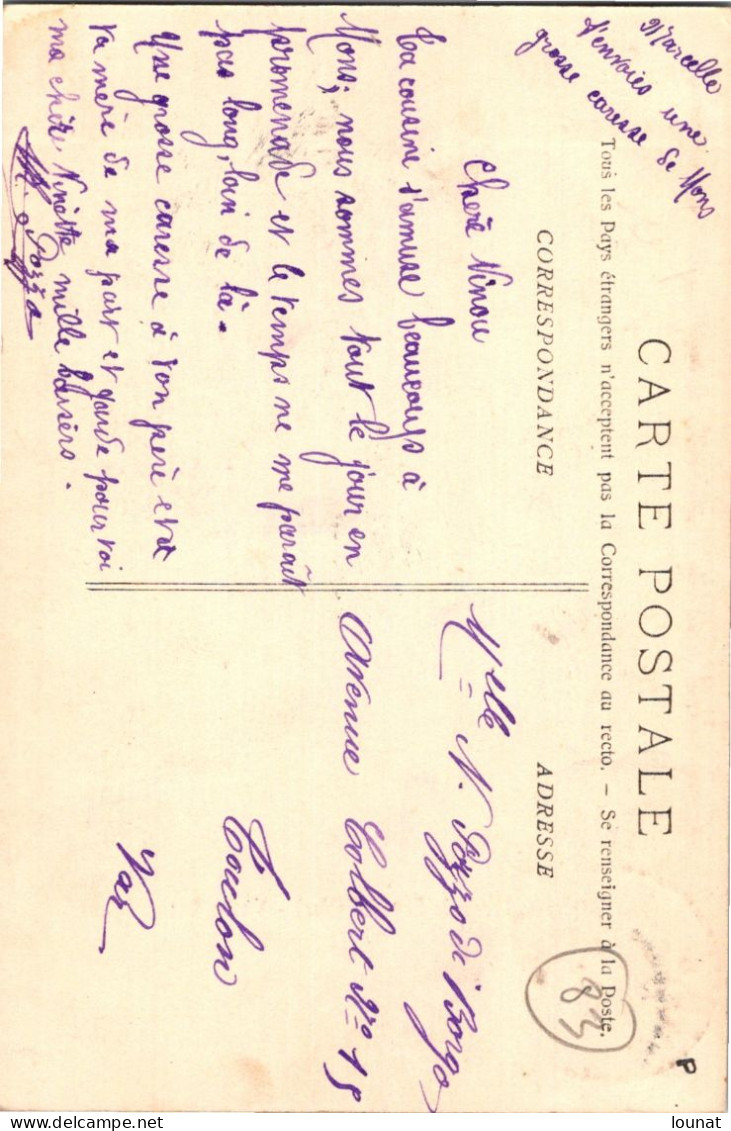 CARTE POSTALE
Tous les Pays étrangers n'acceptent pas la Correspondance au recto. – Se renseigner à la Poste.
CORRESPONDANCE
ADRESSE
Marcelle
t'envoies une
grosse caresse de Mons
Chère Ninou
Ta cousine s'amuse beaucoups à
Mons; nous sommes tout le jour en
promenade et le temps ne me paraît
pas long, loin de là.
Une grosse caresse à ton père et à
ta mère de ma part et garde pour toi
ma chère Ninette mille baisers.
M. Pozzo
Melle N. Pozzo di Borgo
Avenue Colbert No 15
Toulon
Var
83
P
lounat